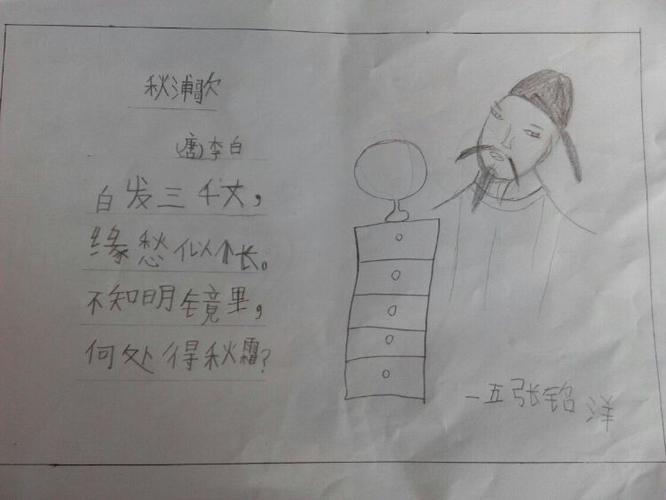 秋浦歌
(唐)李白
白发三千丈，
缘愁似个长。
不知明镜里，
何处得秋霜?
一五张铭洋